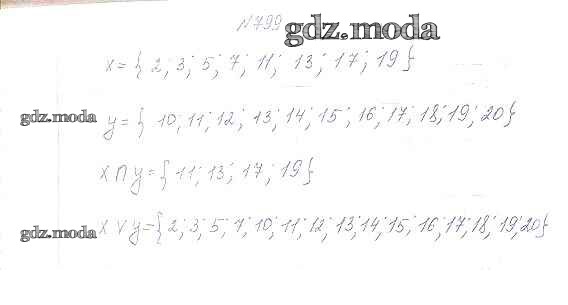 N799 gdz.moda
X = { 2; 3; 5; 7; 11; 13; 17; 19 }
gdz.moda y = { 10; 11; 12; 13; 14; 15; 16; 17; 18; 19; 20 }
X ∩ y = { 11; 13; 17; 19 }
gdz.moda X ∨ y = { 2; 3; 5; 7; 10; 11; 12; 13; 14; 15; 16; 17; 18; 19; 20 }